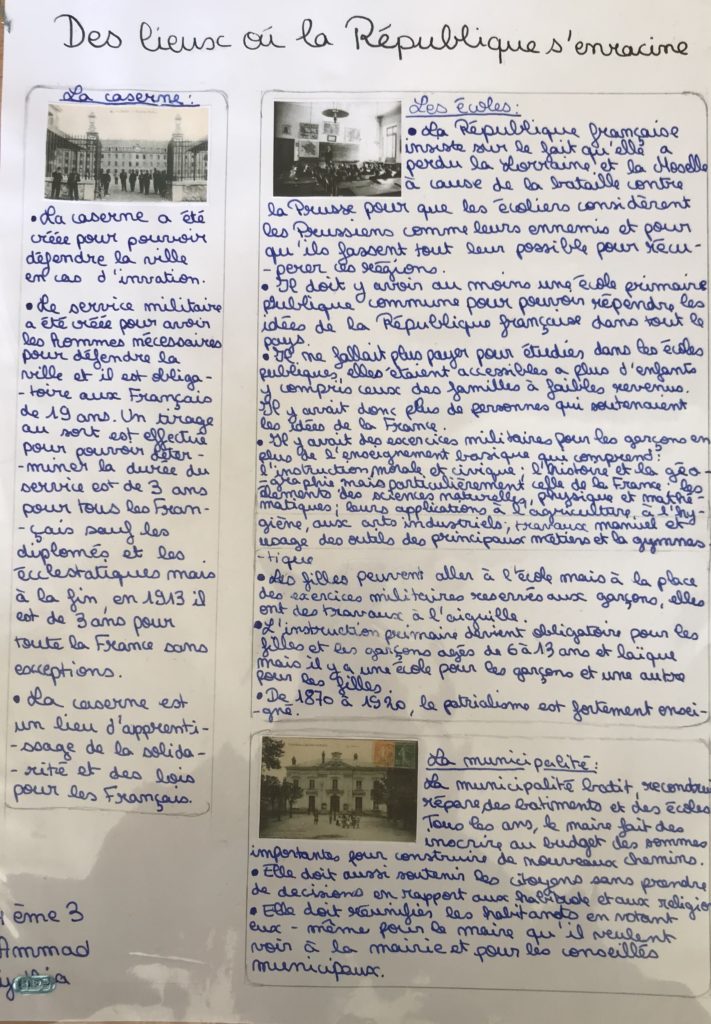 Des lieux où la République s'enracine
La caserne :
• La caserne a été
créée pour pouvoir
défendre la ville
en cas d'invation.
• Le service militaire
a été créée pour avoir
les hommes nécessaires
pour défendre la
ville et il est obliga-
-toire aux Français
de 19 ans. Un tirage
au sort est effectué
pour pouvoir déter-
-miner la durée du
service est de 3 ans
pour tous les Fran-
-çais sauf les
diplomés et les
écclestatiques mais
à la fin, en 1913 il
est de 3 ans pour
toute la France sans
exceptions.
• La caserne est
un lieu d'apprenti-
-ssage de la solida-
-rité et des lois
pour les Français.
Les écoles :
• La République française
insiste sur le fait qu'elle a
perdu la Lorraine et la Moselle
à cause de la bataille contre
la Prusse pour que les écoliers considèrent
les Prussiens comme leurs ennemis et pour
qu'ils fassent tout leur possible pour récu-
-perer ces régions.
• Il doit y avoir au moins une école primaire
publique commune pour pouvoir répendre les
idées de la République française dans tout le
pays.
• Il ne fallait plus payer pour étudies dans les écoles
publiques, elles étaient accessibles a plus d'enfants
y compris ceux des familles à faibles revenus.
Il y avait donc plus de personnes qui soutenaient
les idées de la France.
• Il y avait des exercices militaires pour les garçons en
plus de l'enseignement basique qui comprend :
l'instruction morale et civique ; l'histoire et la géo-
-graphie mais particulièrement celle de la France ; les
éléments des sciences naturelles, physique et mathé-
-matiques ; leurs applications à l'agriculture, à l'hy-
giène, aux arts industriels, travaux manuel et
usage des outils des principaux métiers et la gymnas-
-tique
• Les filles peuvent aller à l'école mais à la place
des exercices militaires reservés aux garçons, elles
ont des travaux à l'aiguille.
• L'instruction primaire devient obligatoire pour les
filles et les garçons agés de 6 à 13 ans et laïque
mais il y a une école pour les garçons et une autre
pour les filles.
• De 1870 à 1920, le patrialisme est fortement ensei-
gné.
La municipalité :
La municipalité batit, recondrui
répare des batiments et des écoles
Tous les ans, le maire fait des
inscrire au budget des sommes
importantes pour construire de nouveaux chemins.
• Elle doit aussi soutenir les citoyens sans prendre
de decisions en rapport aux habitude et aux religio
• Elle doit réunifiés les habitants en votant
eux-même pour le maire qu'il veulent
voir à la mairie et pour les conseillés
municipaux.
ème 3
Ammad